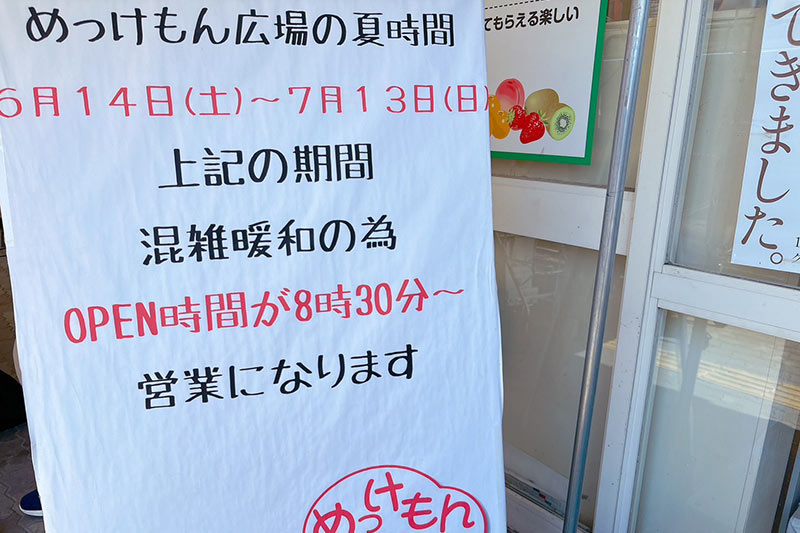 めっけもん広場の夏時間
6月14日(土)～7月13日(日)
上記の期間
混雑暖和の為
OPEN時間が8時30分～
営業になります
めっけもん
てもらえる楽しい
できました。